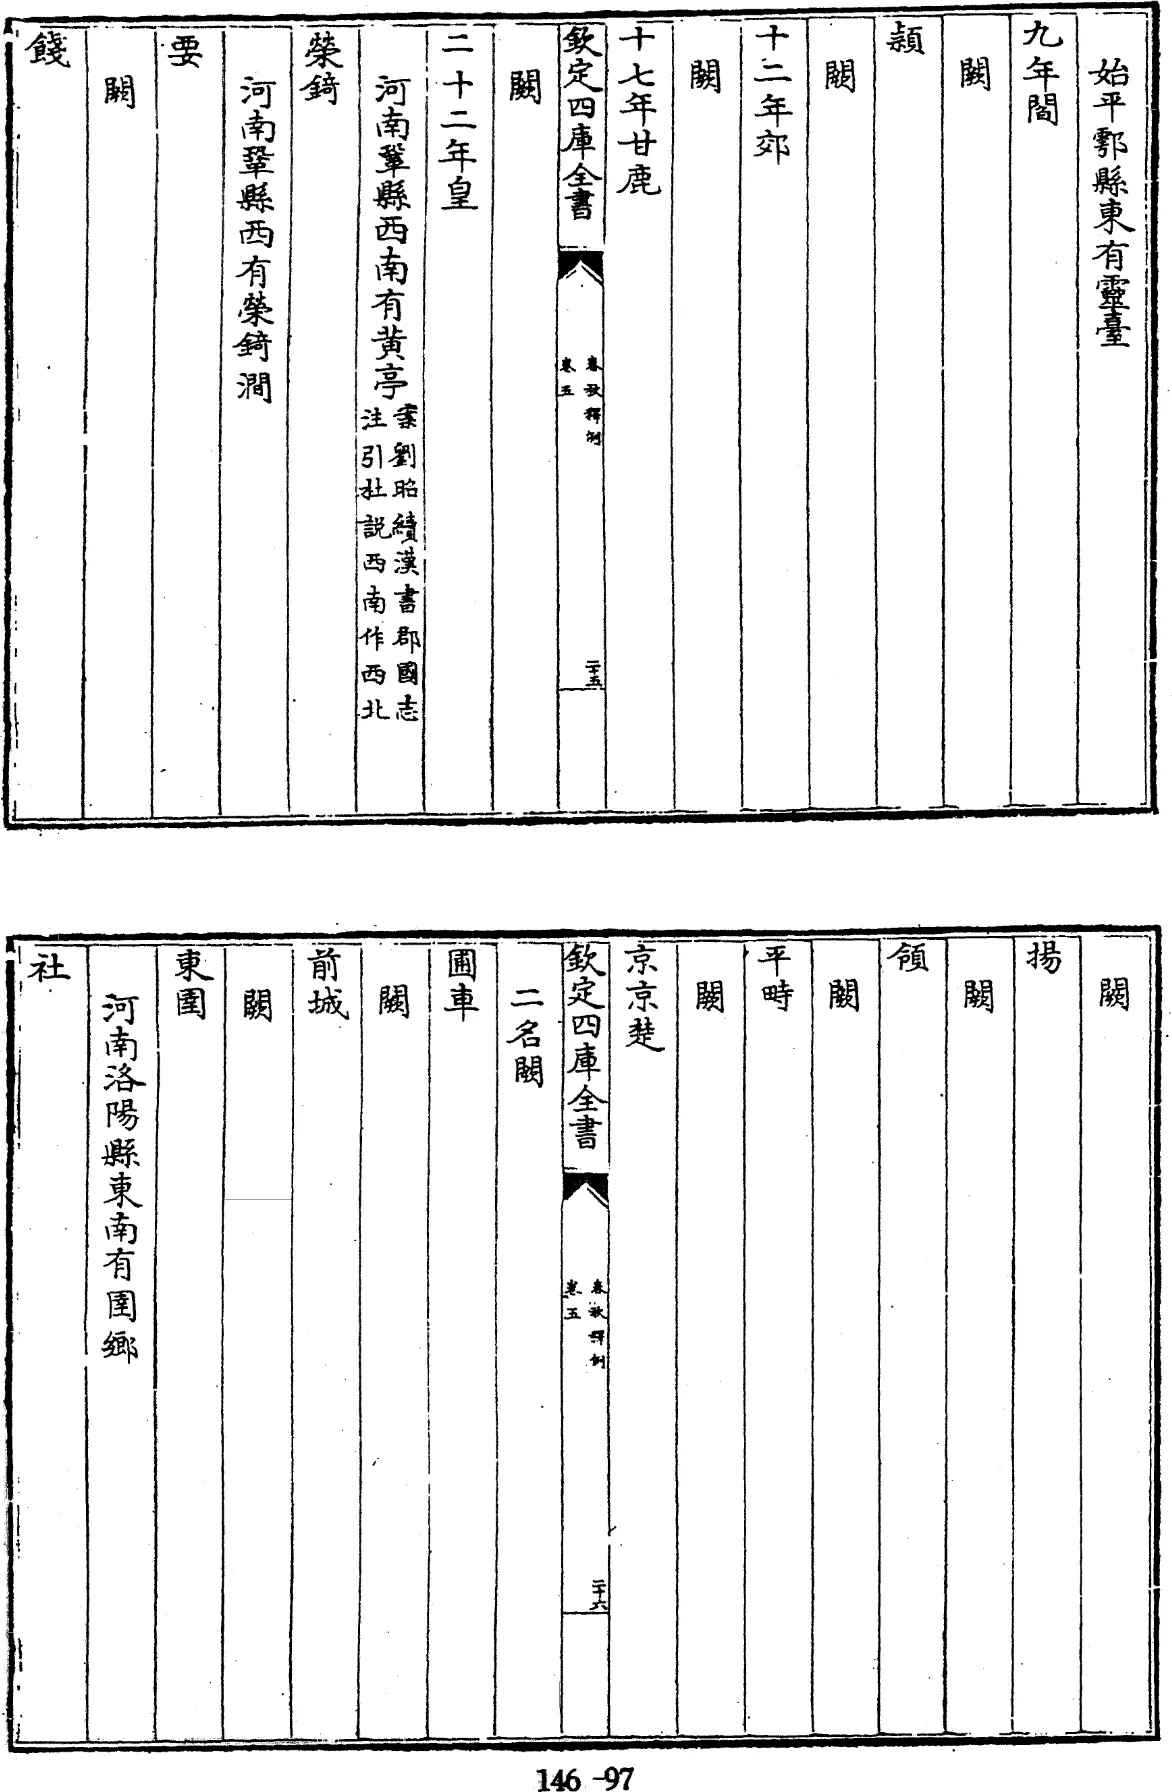 始平鄠縣東有靈臺
九年閻
闕
潁
闕
十二年郊
闕
十七年甘鹿
欽定四庫全書
春秋釋例
卷五
二十五
闕
二十二年皇
河南鞏縣西南有黄亭案劉昭續漢書郡國志
注引杜説西南作西北
榮錡
河南鞏縣西有榮錡澗
要
闕
餞
闕
揚
闕
領
闕
平畤
闕
京京楚
欽定四庫全書
春秋釋例
卷五
二十六
二名闕
圃車
闕
前城
闕
東圉
河南洛陽縣東南有圉鄉
社
146-97